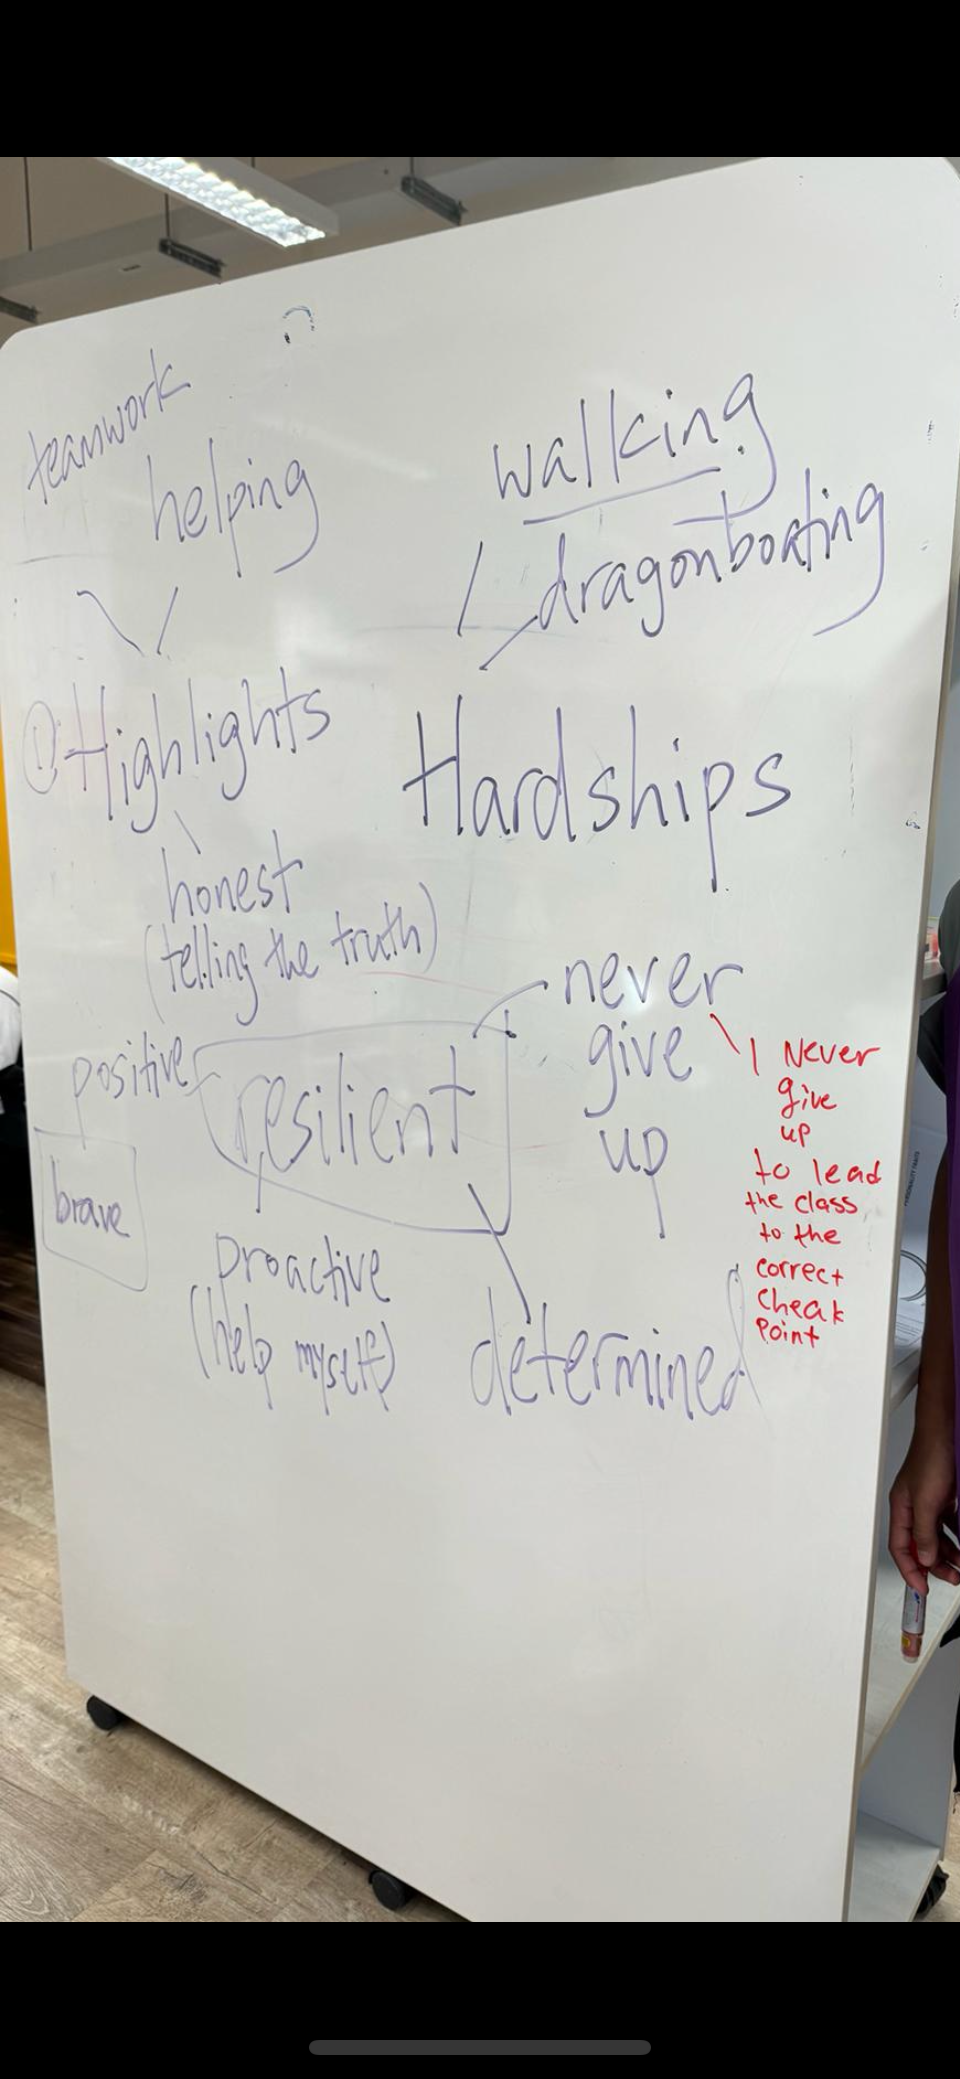 teamwork
helping
① Highlights
honest
(telling the truth)
walking
dragonboating
Hardships
positive
brave
resilient
proactive
(help myself)
never
give
up
determined
I Never
give
up
to lead
the class
to the
correct
cheak
point